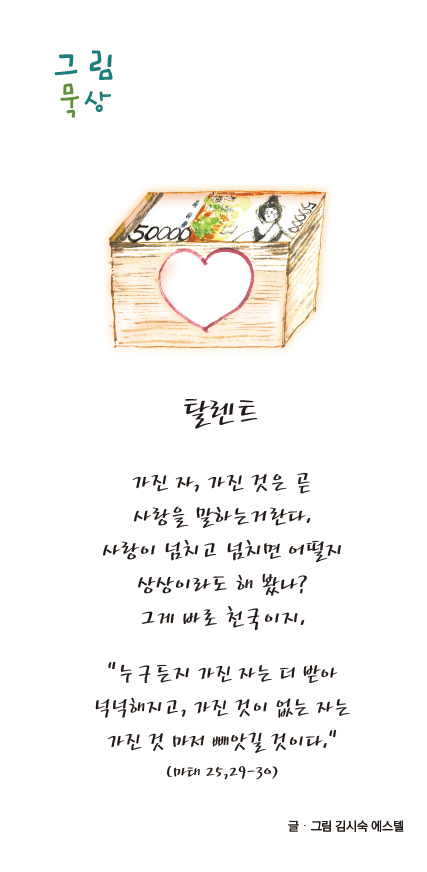 그림
묵상
50000
50000
탈렌트
가진 자, 가진 것은 곧
사랑을 말하는거란다.
사랑이 넘치고 넘치면 어떨지
상상이라도 해 봤나?
그게 바로 천국이지.
"누구든지 가진 자는 더 받아
넉넉해지고, 가진 것이 없는 자는
가진 것 마저 빼앗길 것이다."
(마태 25,29-30)
글 · 그림 김시숙 에스텔